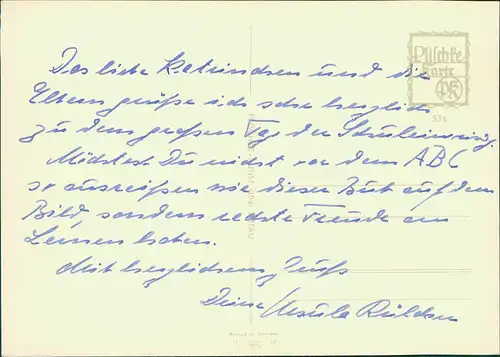 Plischke
Karte
PK
536
Das liebe Katrinchen und die
Eltern grüße ich sehr herzlich
zu dem großen Tag der Schuleinweisg.
Möchtest Du nicht vor dem ABC
so ausreißen wie dieser Bub auf dem
Bild, sondern rechte Freude am
Lernen haben.
Mit herzlichem Gruß
Deine Ursula
Printed in Germany